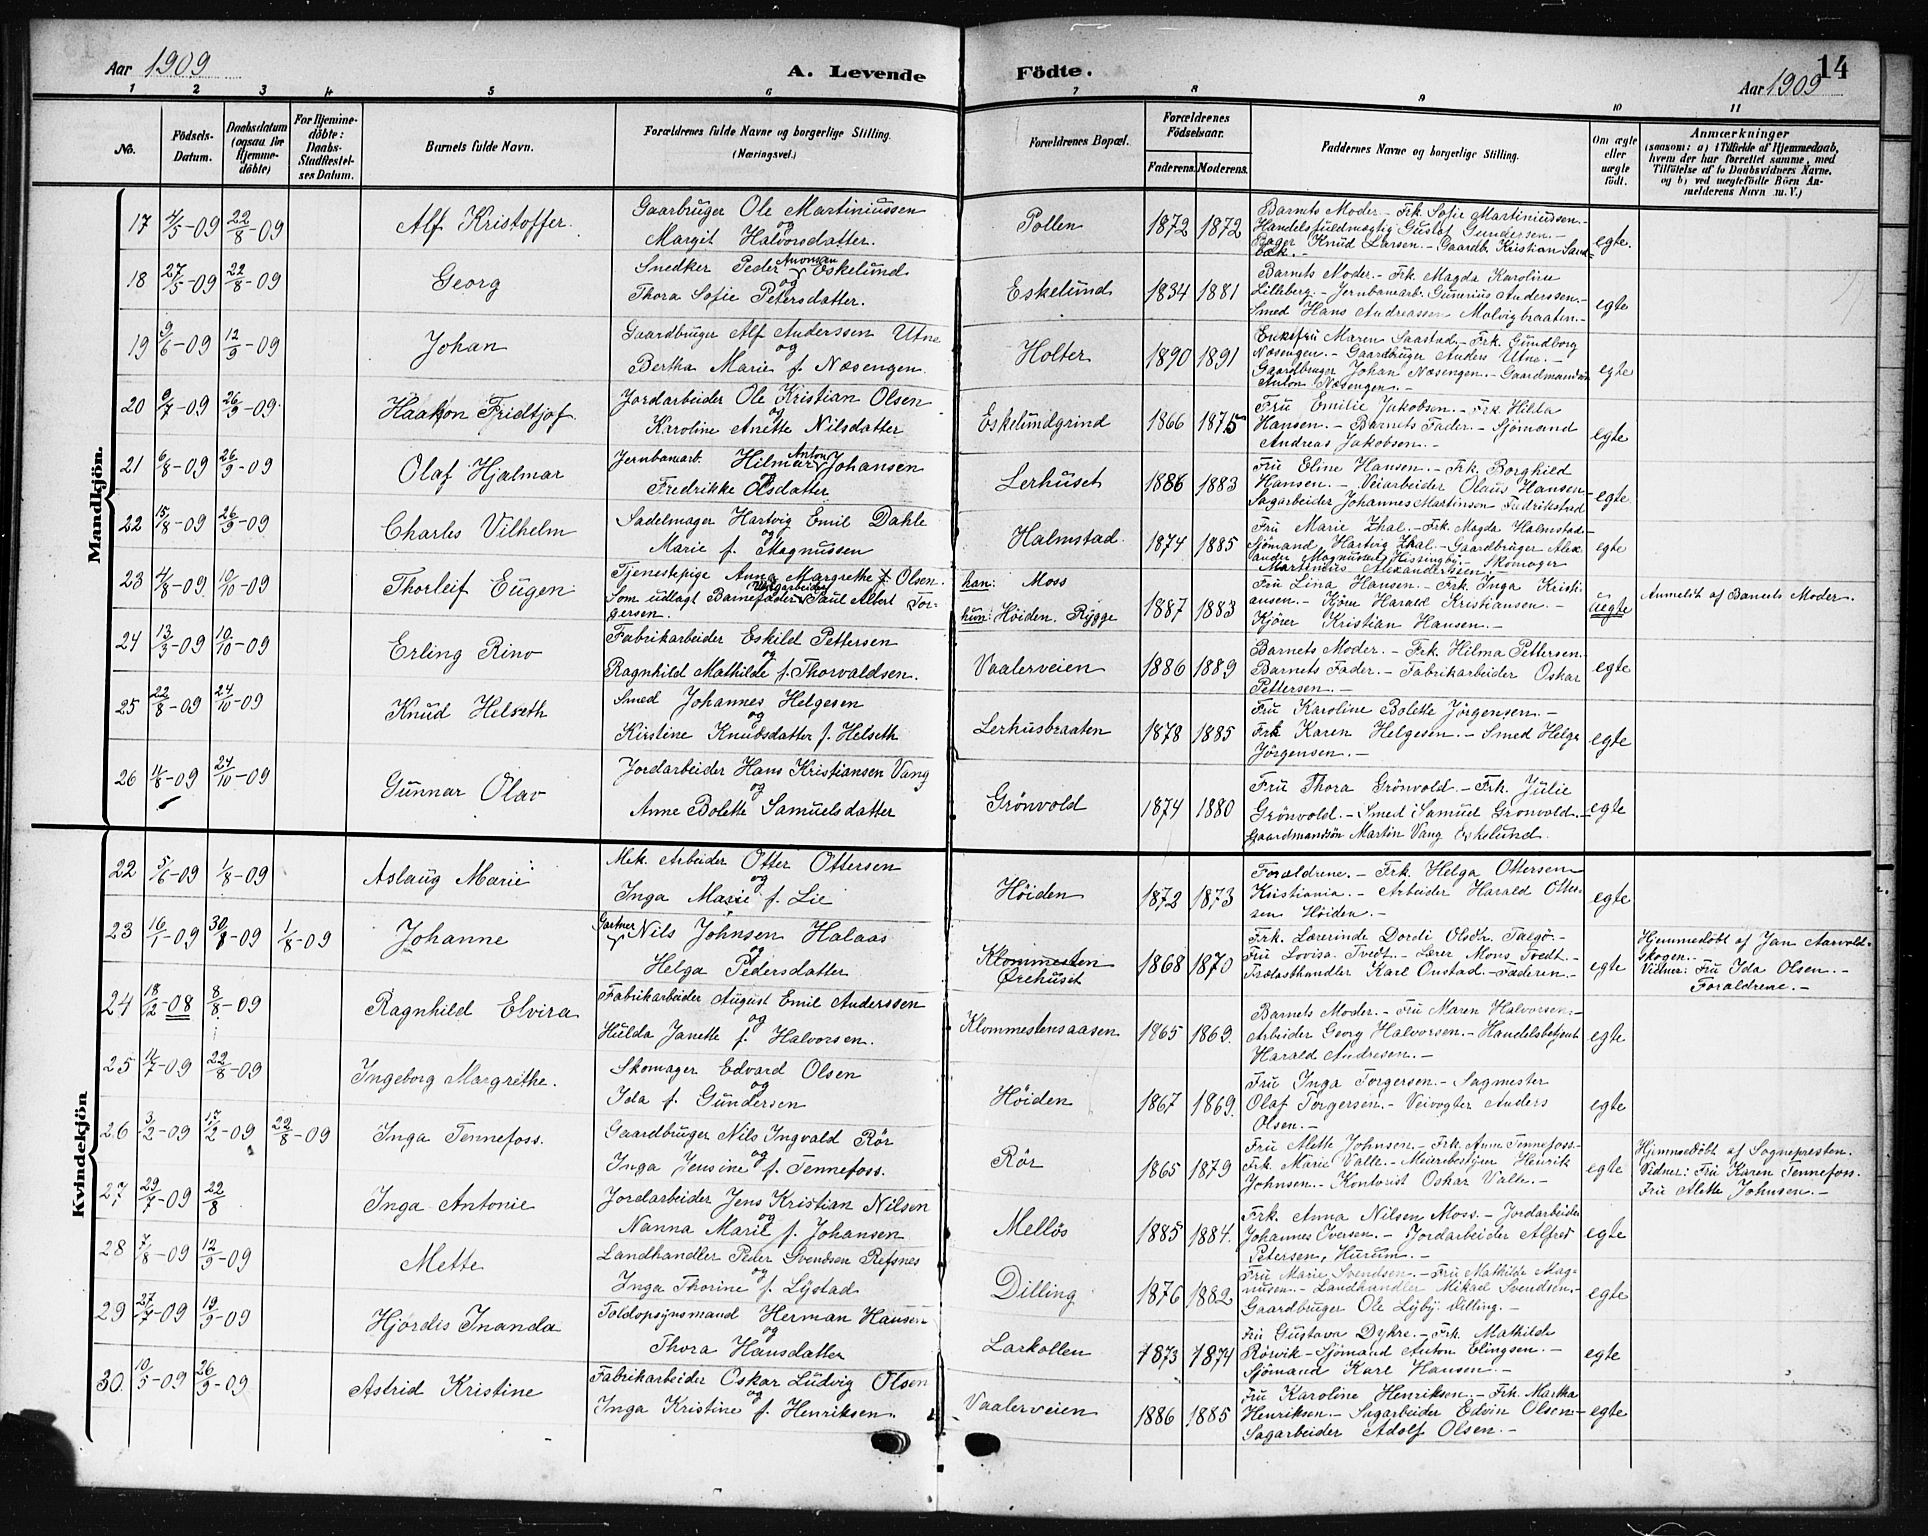 Aar 1909
A. Levende Födte.
Aar 1909
14
1 2 3 4 5 6 7 8 9 10 11
No.
Födsels-Datum.
Daabsdatum (ogsaa for Hjemmedöbte)
For Hjemmedöbte: Daabs-Stadfæstelses Datum.
Barnets fulde Navn.
Forældrenes fulde Navne og borgerlige Stilling. (Næringsvei.)
Forældrenes Bopæl.
Forældrenes Födselsaar.
Faderens. Moderens.
Faddernes Navne og borgerlige Stilling.
Om ægte eller uægte födt.
Anmærkninger (saasom: a) i Tilfælde af Hjemmedaab, hvem der har forrettet samme, med Tilföielse af to Daabsvidners Navne, og b) ved uægtefödte Börn Anmelderens Navn m. V.)
Mandkjön.
17 4/5-09 22/8-09 Alf Kristoffer. Gaarbruger Ole Martiniussen og Margit Halvorsdatter. Pollen 1872 1872 Barnets Moder.- Frk. Sofie Martiniussen.- Handelsfuldmægtig Gustaf Gundersen.- Bager Knud Larsen.- Gaardb. Kristian Sandbæk.- egte.
18 27/5-09 22/8-09 Georg Snedker Peder Eskelund og Thora Sofie Petersdatter. Eskelund 1834 1881 Barnets Moder.- Frk. Magda Karoline Lilleberg.- Jernbanearb. Gunerius Anderssen.- Smed Hans Andreassen Molvigbraaten.- egte
19 9/6-09 12/9-09 Johan Gaardbruger Alf Anderssen Utne og Bertha Marie f. Næsengen. Holter 1890 1891 Enkefru Maren Saastad.- Frk. Gundborg Næsengen.- Gaardbruger Anders Utne.- Gaardbruger Johan Næsengen.- Gaardmandsön Anton Næsengen.- egte
20 9/7-09 26/9-09. Haakon Fridtjof Jordarbeider Ole Kristian Olsen og Karoline Anette Nilsdatter Eskelundgrind 1866 1875 Fru Emilie Jakobsen.- Frk. Hilda Hansen.- Barnets Fader.- Sjömand Andreas Jakobsen.- egte
21 6/8-09 26/9-09 Olaf Hjalmar Jernbanearb. Hilmar Anton Johansen og Fredrikke Olsdatter Lerhuset 1886 1883 Fru Eline Hansen.- Frk. Borghild Hansen.- Veiarbeider Olaus Hansen- Sagarbeider Johannes Martinsen Fredrikstad egte
22 15/8-09 26/9-09 Charles Vilhelm Sadelmager Hartvig Emil Dahle og Marie f. Magnussen Halmstad. 1874 1885 Fru Marie Dahl.- Frk. Magda Halmstad- Sjömand Hartvig Dahl.- Gaardbruger Alexander Magnussen Hissingby.- Skomager Martinius Alexanderssen. egte
23 4/8-09. 10/10-09 Thorleif Eugen Tjenestepige Anna Margrethe f. Olsen. Som udlagt Barnefader Valgarbeider Paul Albert Torgersen. han: Moss hun: Höiden, Rygge 1887 1883 Fru Lina Hansen.- Frk. Inga Kristiansen.- Kjörer Harald Kristiansen.- Kjörer Kristian Hansen.- uegte Anmeldt af Barnets Moder.
24 13/3-09 10/10-09 Erling Rino Fabrikarbeider Eskild Pettersen og Ragnhild Mathilde f. Thorvaldsen. Vaalerveien 1886 1889 Barnets Moder.- Frk. Hilma Pettersen. Barnets Fader.- Fabrikarbeider Oskar Pettersen.- egte
25 22/8-09 24/10-09 Knud Helseth Smed Johannes Helgesen og Kirstine Knudsdatter f. Helseth Lerhusbraaten 1878 1885 Fru Karoline Bolette Jörgensen.- Frk Karen Helgesen.- Smed Helge Jörgensen.- egte
26 4/8-09 24/10-09 Gunnar Olav Jordarbeider Hans Kristiansen Vang og Anne Bolette Samuelsdatter Grönvold 1874 1880 Fru Thora Grönvold.- Frk. Julie Grönvold.- Smed Samuel Gronvold.- Gaardmandsön Martin Vang Eskelund. egte
Kvindekjön
22 5/6-09 1/8-09 Aslaug Marie Mek. Arbeider Otter Ottersen og Inga Marie f. Lie Höiden 1872 1873 Foraldrene.- Frk. Helga Ottersen Kristiania.- Arbeider Harald Ottersen Höiden.- egte
23 16/1-09 30/1-09 1/8-09 Johanne Gartner Nils Johnsen Halaas og Helga Pedersdatter Klommesten Ørehuset 1868 1870 Frk. Lærerinde Dordi Olsdtr. Tælgö.- Fru Lovisa Tvedt.- Lærer Mons Tvedt.- Trælasthandler Karl Onstad.- Faderen.- egte Hjemmedöbt af Jan Aarvold- Skogen.- Vidner: Fru Ida Olsen.- Foraldrene.-
24 18/12-08 8/8-09 Ragnhild Elvira Fabrikarbeider August Emil Anderssen og Hulda Janette f. Halvorsen. Klommestensaasen 1865 1869. Barnets Moder.- Fru Maren Halvorsen.- Arbeider Georg Halvorsen.- Handelsbetjent Harald Andresen.- egte
25 11/7-09 22/8-09 Ingeborg Margrethe. Skomager Edvard Olsen og Ida f. Gundersen Höiden 1867 1869. Fru Inga Torgersen.- Sagmester Olaf Torgersen.- Veivogter Anders Olsen.- egte
26 3/2-09 17/2-09 22/8-09 Inga Tennefoss. Gaardbruger Nils Ingvald Rör og Inga Jensine f. Tennefoss. Rör 1865 1879 Fru Mette Johnsen.- Frk. Anne Tennefoss.- Frk. Marie Valle.- Meieribestyrer Henrik Johnsen.- Kontorist Oskar Valle.- egte Hjemmedöbt af Sognepresten. Vidner: Fru Karen Tennefoss. Fru Mette Johnsen.-
27 29/7-09 22/8 Inga Antonie Jordarbeider Jens Kristian Nilsen og Nanna Marie f. Johansen Mellös 1885 1884. Frk. Anna Nilsen Moss.- Jordarbeider Johannes Iversen.- Jordarbeider Alfred Petersen, Hurum.- egte
28 7/8-09 12/9-09 Mette Landhandler Peder Svendsen Refsnes og Inga Thorine f. Lystad Dilling 1876 1882 Fru Marie Svendsen.- Fru Mathilde Magnusen.- Landhandler Mikael Svendsen.- Gaardbruger Ole Lyby, Dilling.- egte
29 27/7-09 19/9-09 Hjördis Inanda Toldopsynsmand Herman Hansen og Thora Hansdatter Larkollen 1873 1874 Fru Gustava Dykre.- Frk. Mathilde Rörvik.- Sjömand Anton Elingsen.- Sjömand Karl Hansen.- egte
30. 10/5-09 26/9-09 Astrid Kristine Fabrikarbeider Oskar Ludvig Olsen og Inga Kristine f. Henriksen. Vaalerveien 1886 1885 Fru Karoline Henriksen.- Frk. Martha Henriksen.- Sagarbeider Edvin Olsen.- Sagarbeider Adolf Olsen.- egte